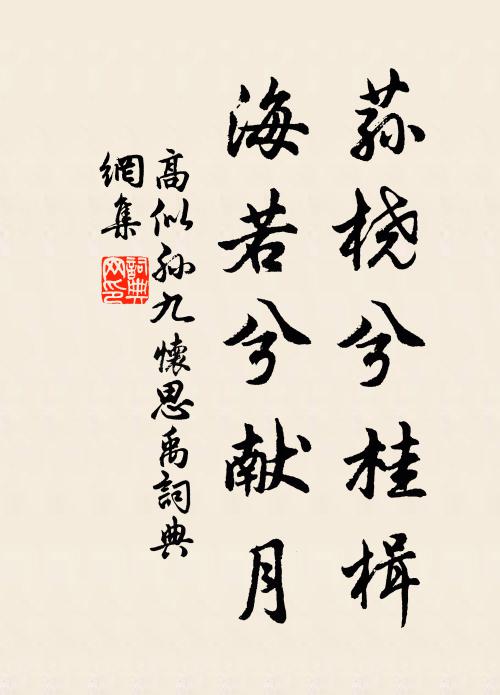 荪桡兮桂楫
海若兮献月
高似孙九懷思禹詞典
網集
詞典
网印